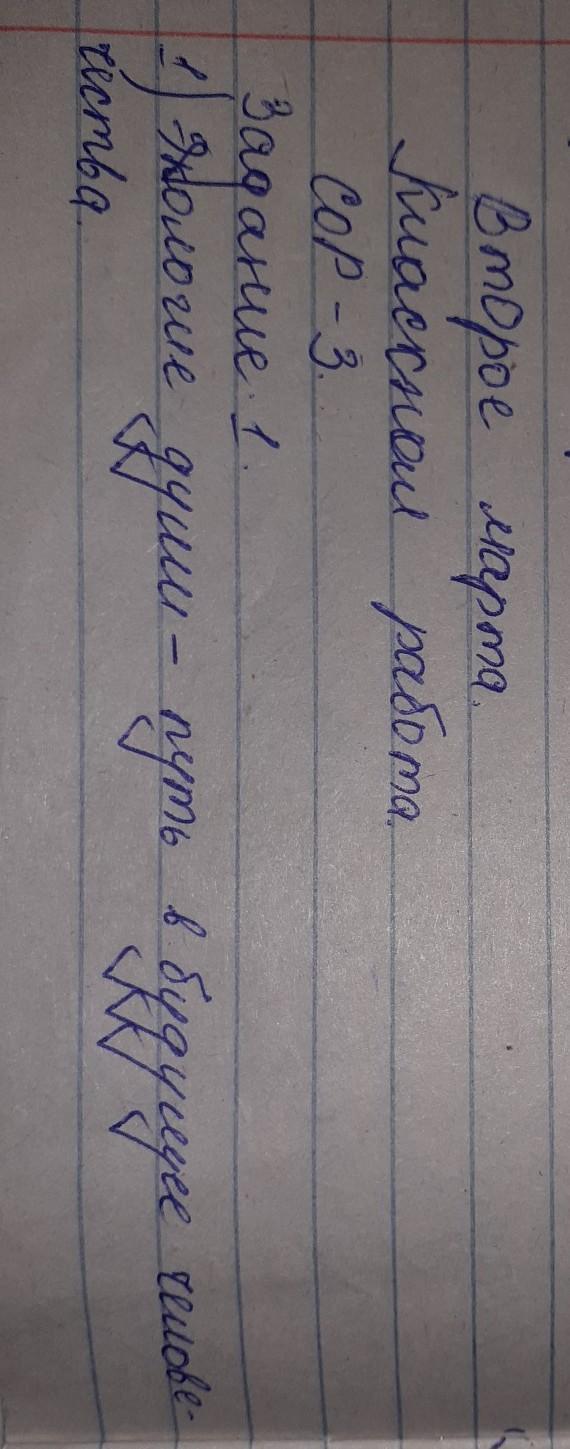 Второе марта.
Класснаая работа.
СОР-3.
Задание 1.
1) Экологие души - путь в будущее челове-
чества.